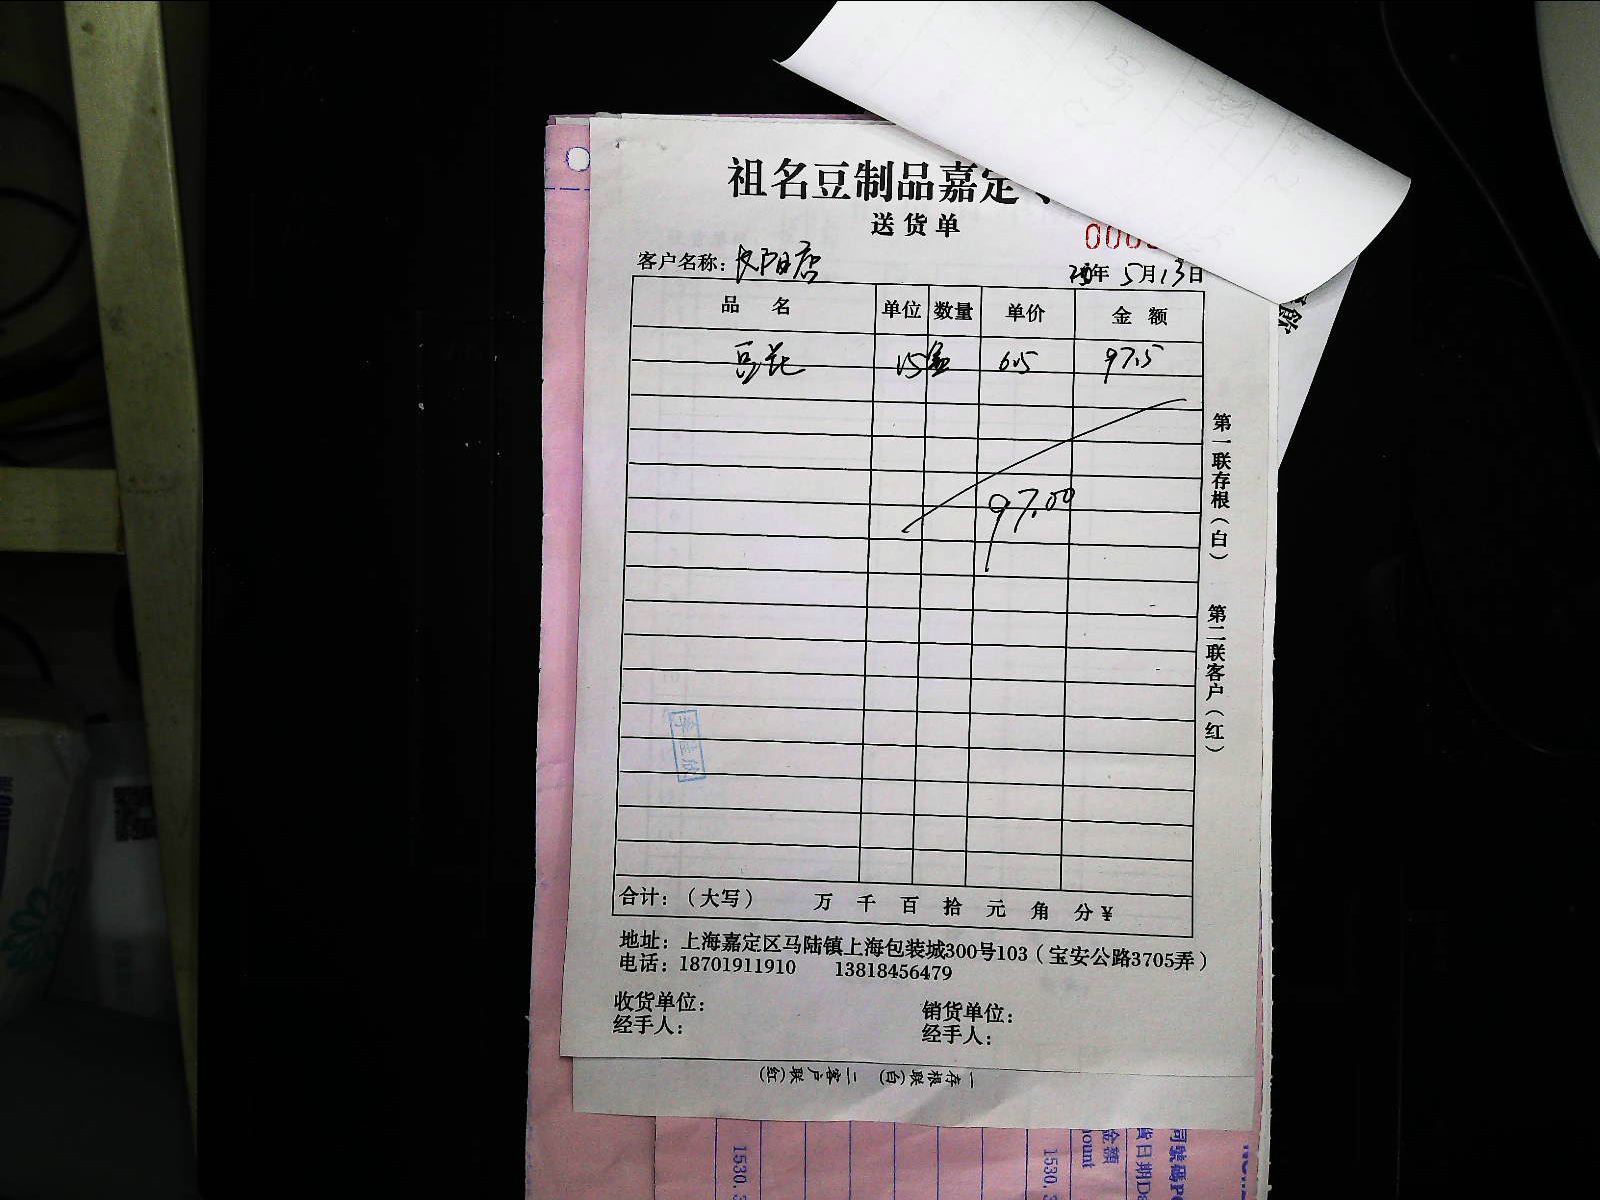 祖名豆制品嘉定
送货单
000
客户名称：
年 5月13日
品名 单位 数量 单价 金额
豆花 15盒 6.5 97.5
97.00
第一联存根（白） 第二联客户（红）
合计：（大写） 万 千 百 拾 元 角 分 ¥
地址：上海嘉定区马陆镇上海包装城300号103（宝安公路3705弄）
电话：18701911910 13818456479
收货单位： 销货单位：
经手人： 经手人：
一存根联(白) 二客户联(红)
1530. 1530. 金額